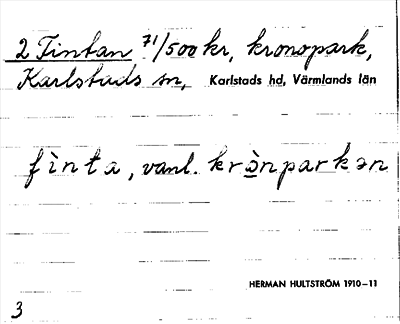 2 Fintan 71/500 kr, kronopark,
Karlstads sn, Karlstads hd, Värmlands län
fìnta, vanl. krò̲nparkən
HERMAN HULTSTRÖM 1910–11
3